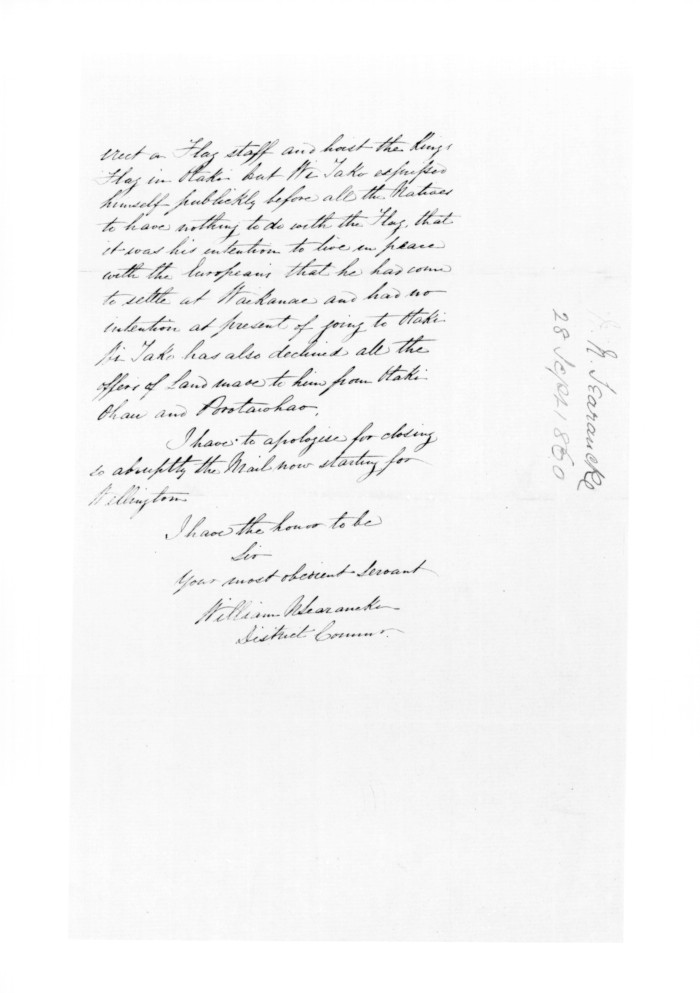 erect a Flag staff and hoist the Kings
Flag in Otaki but Wi Tako expressed
himself publickly before all the Natives
to have nothing to do with the Flag, that
it was his intention to live in peace
with the Europeans that he had come
to settle at Waikanae and had no
intention at present of going to Otaki
Wi Tako has also declined all the
offers of Land made to him from Otaki
Ohau and
I have to apologise for closing
so abruptly the Mail now starting for
Wellington
I have the honor to be
Sir
Your most obedient Servant
William N Searancke
District Commr.
N. Searancke
28 Sept 1860